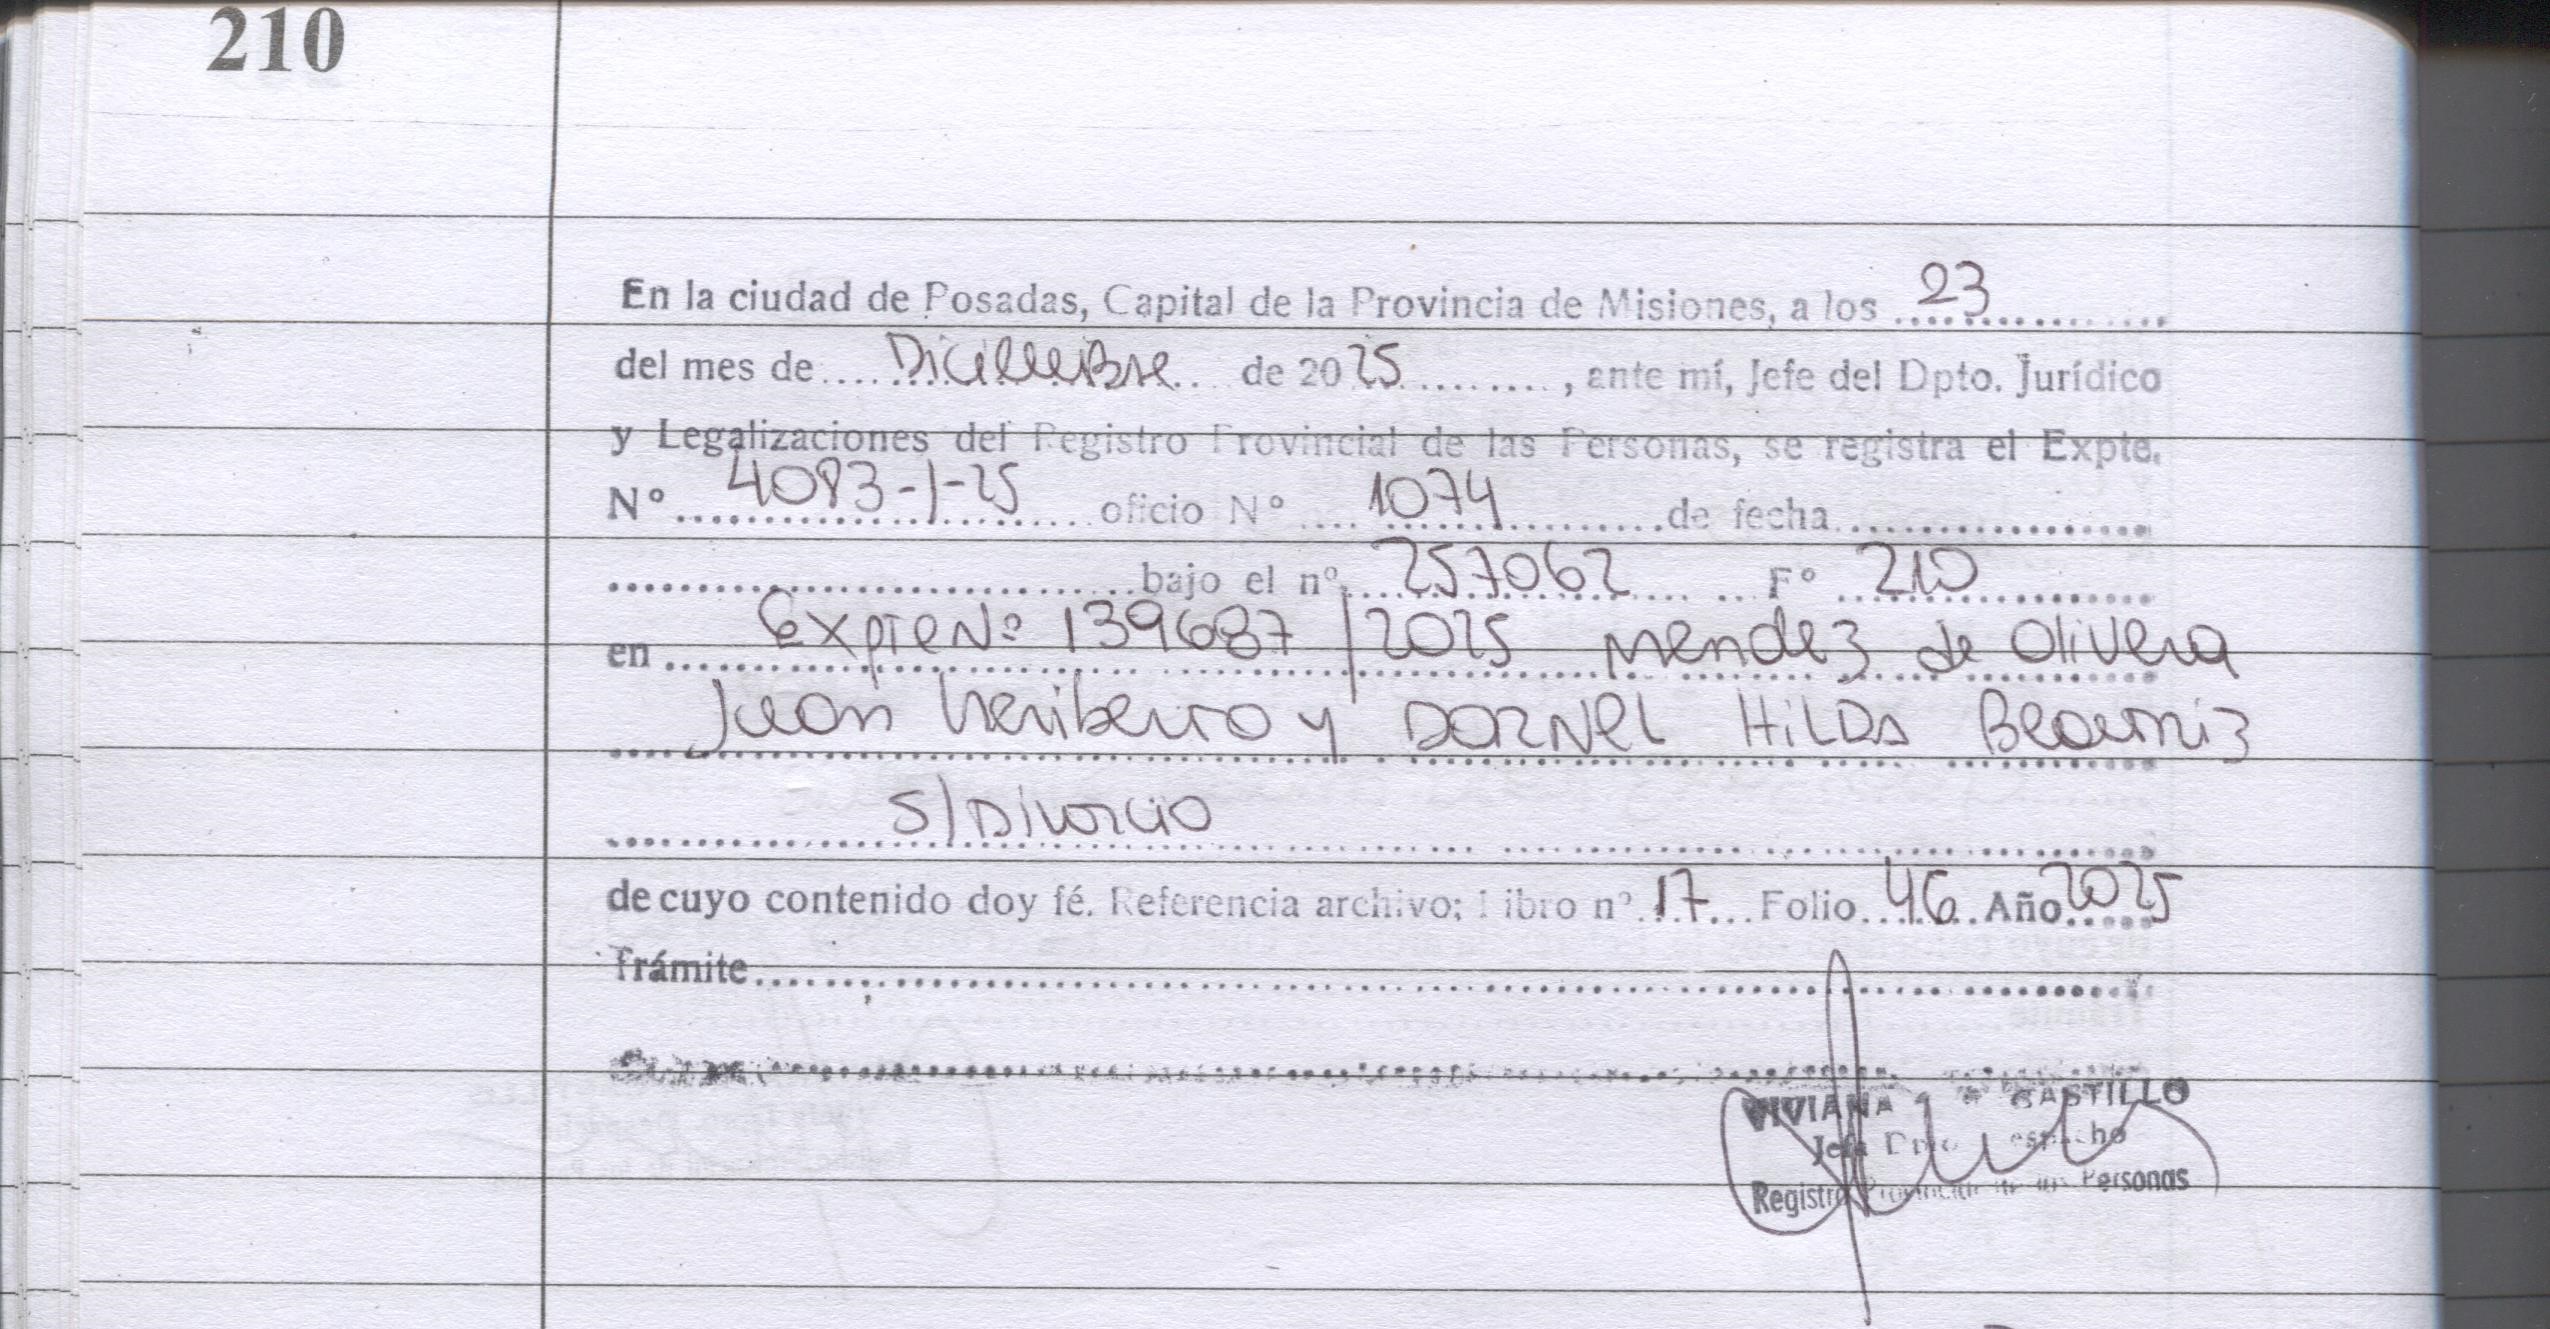 210
En la ciudad de Posadas, Capital de la Provincia de Misiones, a los 23
del mes de Diciembre de 2025, ante mí, Jefe del Dpto. Jurídico
y Legalizaciones del Registro Provincial de las Personas, se registra el Expte.
Nº 4083-1-25 oficio Nº 1074 de fecha
bajo el nº 257062 Fº 210
en Expte Nº 139687/2025 Mendez de Olivera
Juan Heriberto y DORNEL HILDA Beatriz
S/Divorcio
de cuyo contenido doy fé. Referencia archivo; Libro nº 17 Folio 46 Año 2025
Trámite
VIVIANA CASTILLO
Jefa Dpto. Despacho
Registro Provincial de las Personas